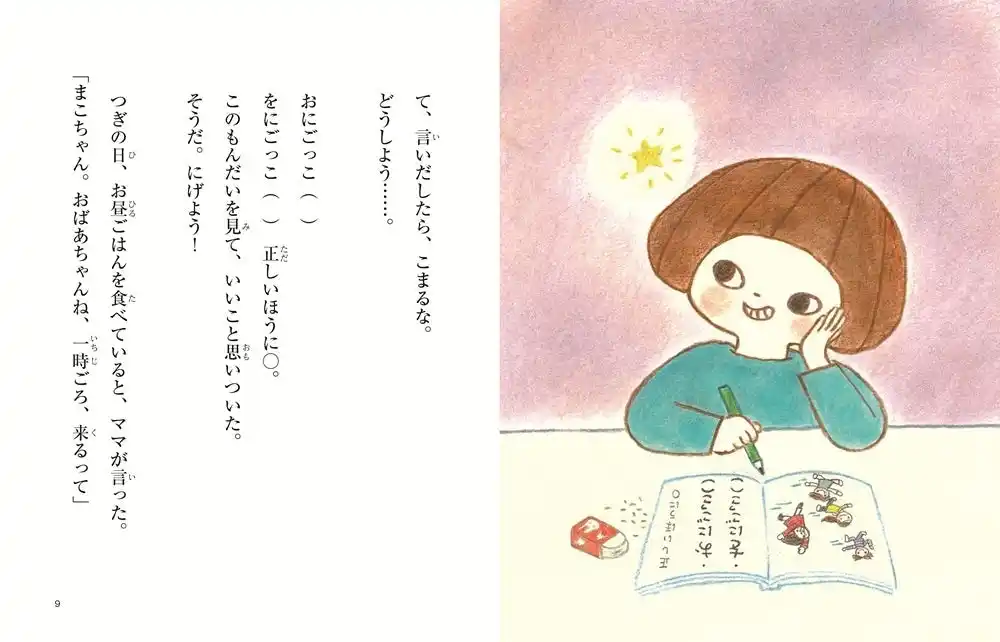 て、言いだしたら、こまるな。
どうしよう……。
おにごっこ（　）
をにごっこ（　）　正しいほうに〇。
このもんだいを見て、いいこと思いついた。
そうだ。にげよう！
つぎの日、お昼ごはんを食べていると、ママが言った。
「まこちゃん。おばあちゃんね、一時ごろ、来るって」
9
・をにごっこ（）
・おにごっこ（）
正しいほうに〇